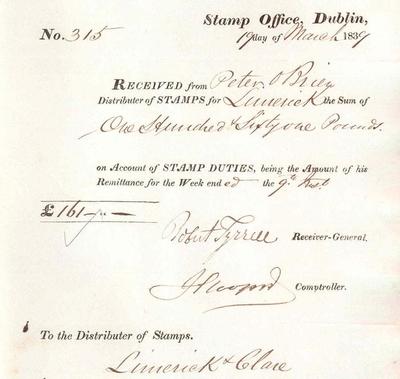 Stamp Office, Dublin,
No. 315 19 day of March 1839
RECEIVED from Peter O'Brien
Distributer of STAMPS for Limerick the Sum of
One Hundred & Sixty one Pounds.
on Account of STAMP DUTIES, being the Amount of his
Remittance for the Week ended the 9th Inst
£161
Robert Tyrrell Receiver-General.
Comptroller.
To the Distributer of Stamps.
Limerick & Clare